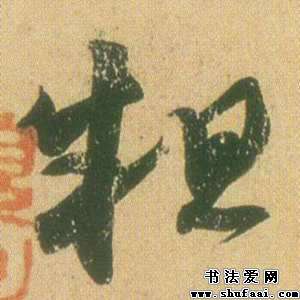 粗
书法爱网
www.shufaai.com